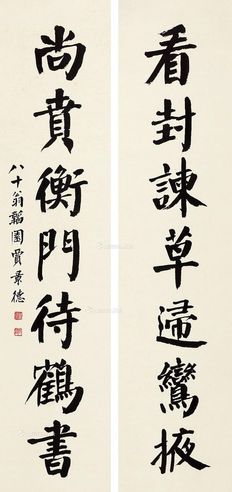 看封諫草歸鸞掖
尚賁衡門待鶴書
八十翁韜園賈景德